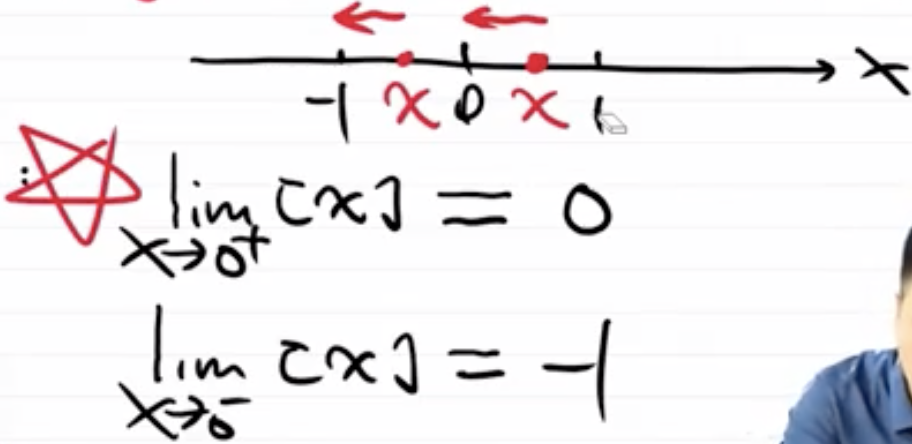 -1 x 0 x 1 x
lim [x] = 0
x→0⁺
lim [x] = -1
x→0⁻